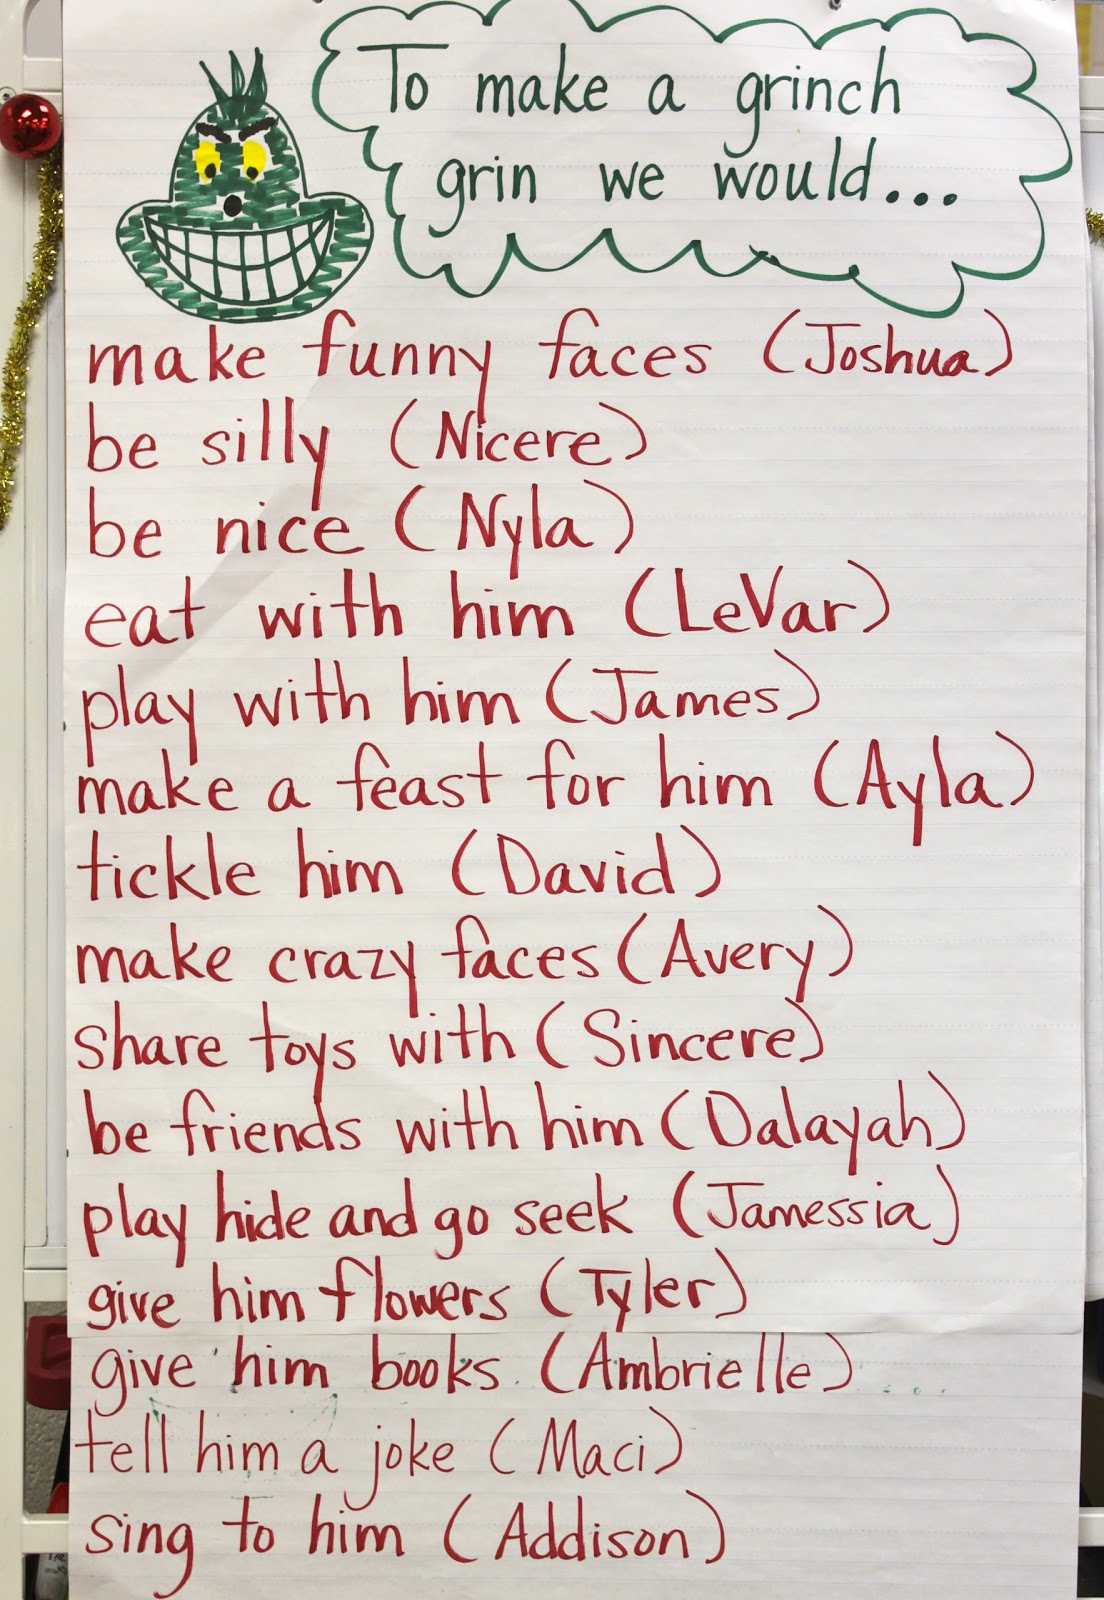 To make a grinch
grin we would...
make funny faces (Joshua)
be silly (Nicere)
be nice (Nyla)
eat with him (LeVar)
play with him (James)
make a feast for him (Ayla)
tickle him (David)
make crazy faces (Avery)
share toys with (Sincere)
be friends with him (Dalayah)
play hide and go seek (Jamessia)
give him flowers (Tyler)
give him books (Ambrielle)
tell him a joke (Maci)
sing to him (Addison)